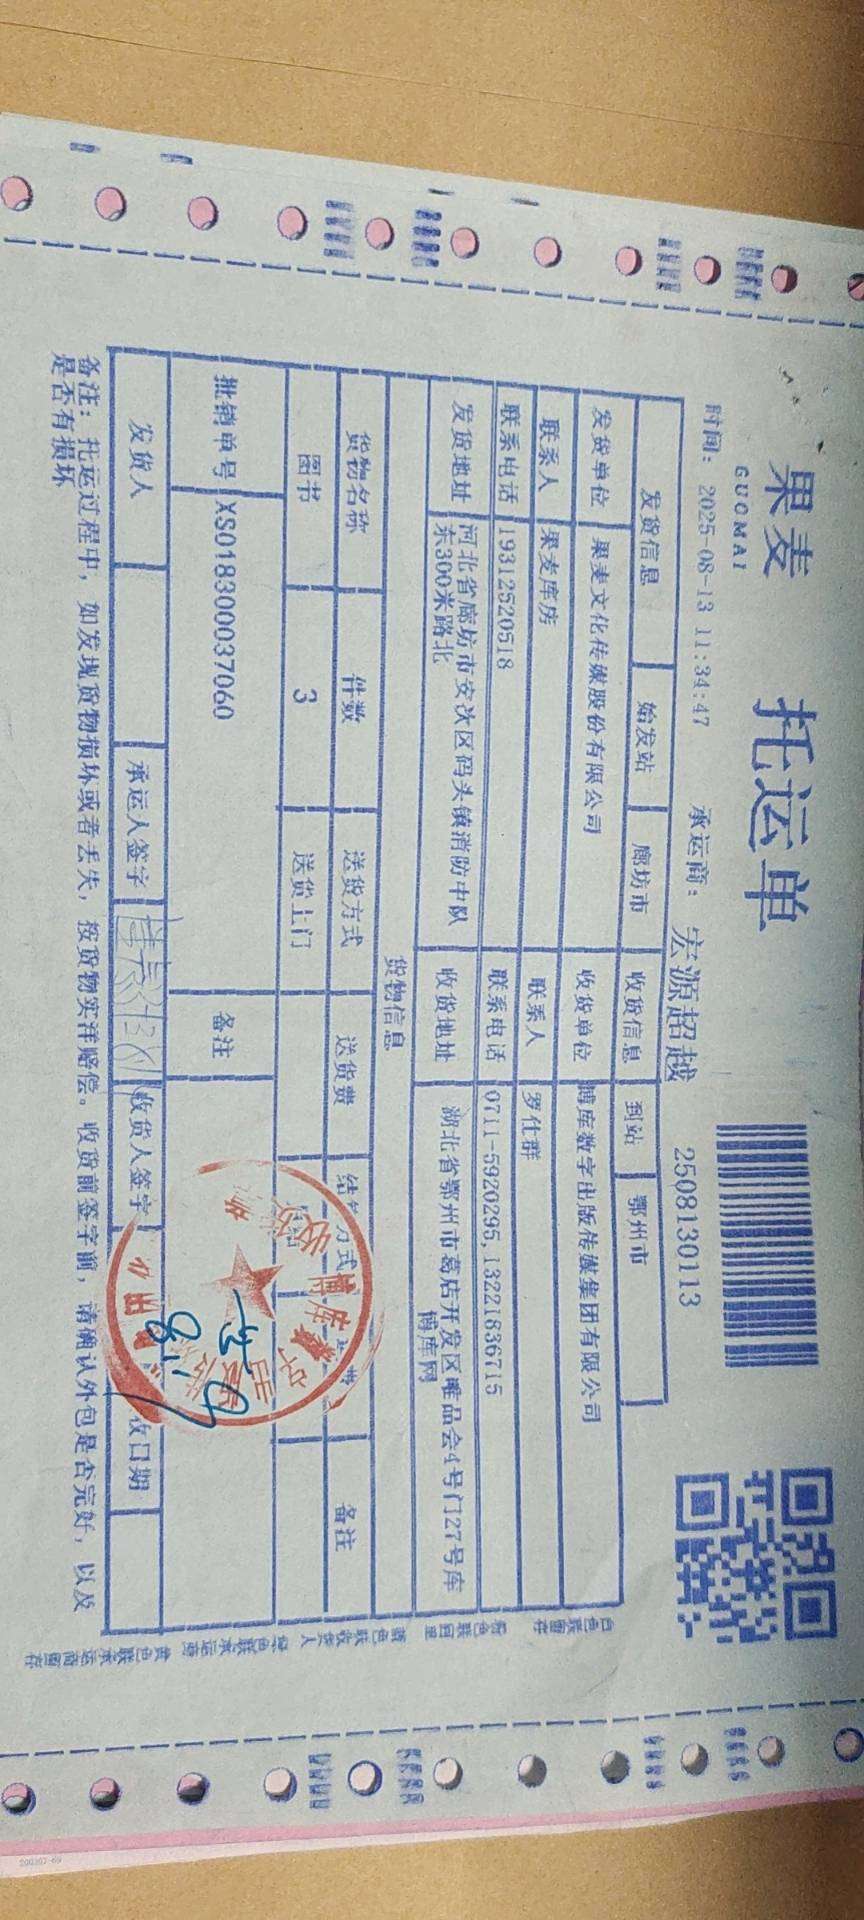 果麦
GUOMAI
托运单
时间: 2025-08-13 11:34:47 承运商: 宏源超越 2508130113
发货信息 始发站 廊坊市 收货信息 到站 鄂州市
发货单位 果麦文化传媒股份有限公司 收货单位 博库数字出版传媒集团有限公司
联系人 果麦库房 联系人 罗仕群
联系电话 19312520518 联系电话 0711-5920295,13221836715
发货地址 河北省廊坊市安次区码头镇消防中队东300米路北 收货地址 湖北省鄂州市葛店开发区唯品会4号门127号库博库网
货物信息
货物名称 件数 送货方式 送货费 结算方式 备注
图书 3 送货上门
批销单号 XS018300037060 备注
发货人 承运人签字 收货人签字 收日期
备注: 托运过程中, 如发现货物损坏或者丢失, 按货物实洋赔偿。收货前签字前, 请确认外包是否完好, 以及
是否有损坏
白色联留存 粉色联回单 蓝色联收货人 绿色联承运商 黄色联承运商留存